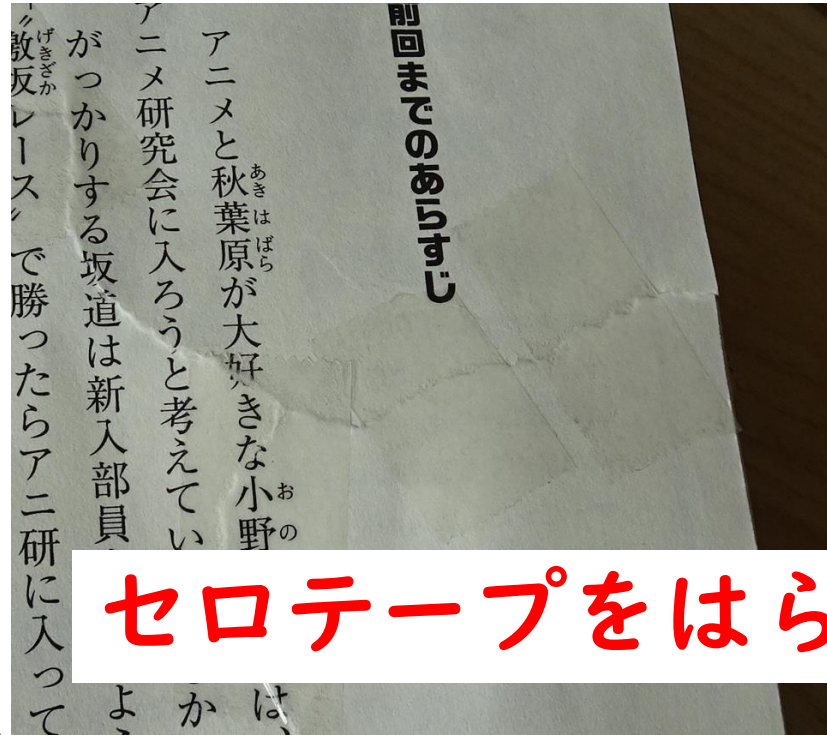 前回までのあらすじ
アニメと秋葉原が大好きな小野
は、
アニメ研究会に入ろうと考えてい
か
がっかりする坂道は新入部員
よ
〝激坂レース〟で勝ったらアニ研に入って
あきはばら
おの
げきざか
セロテープをはら